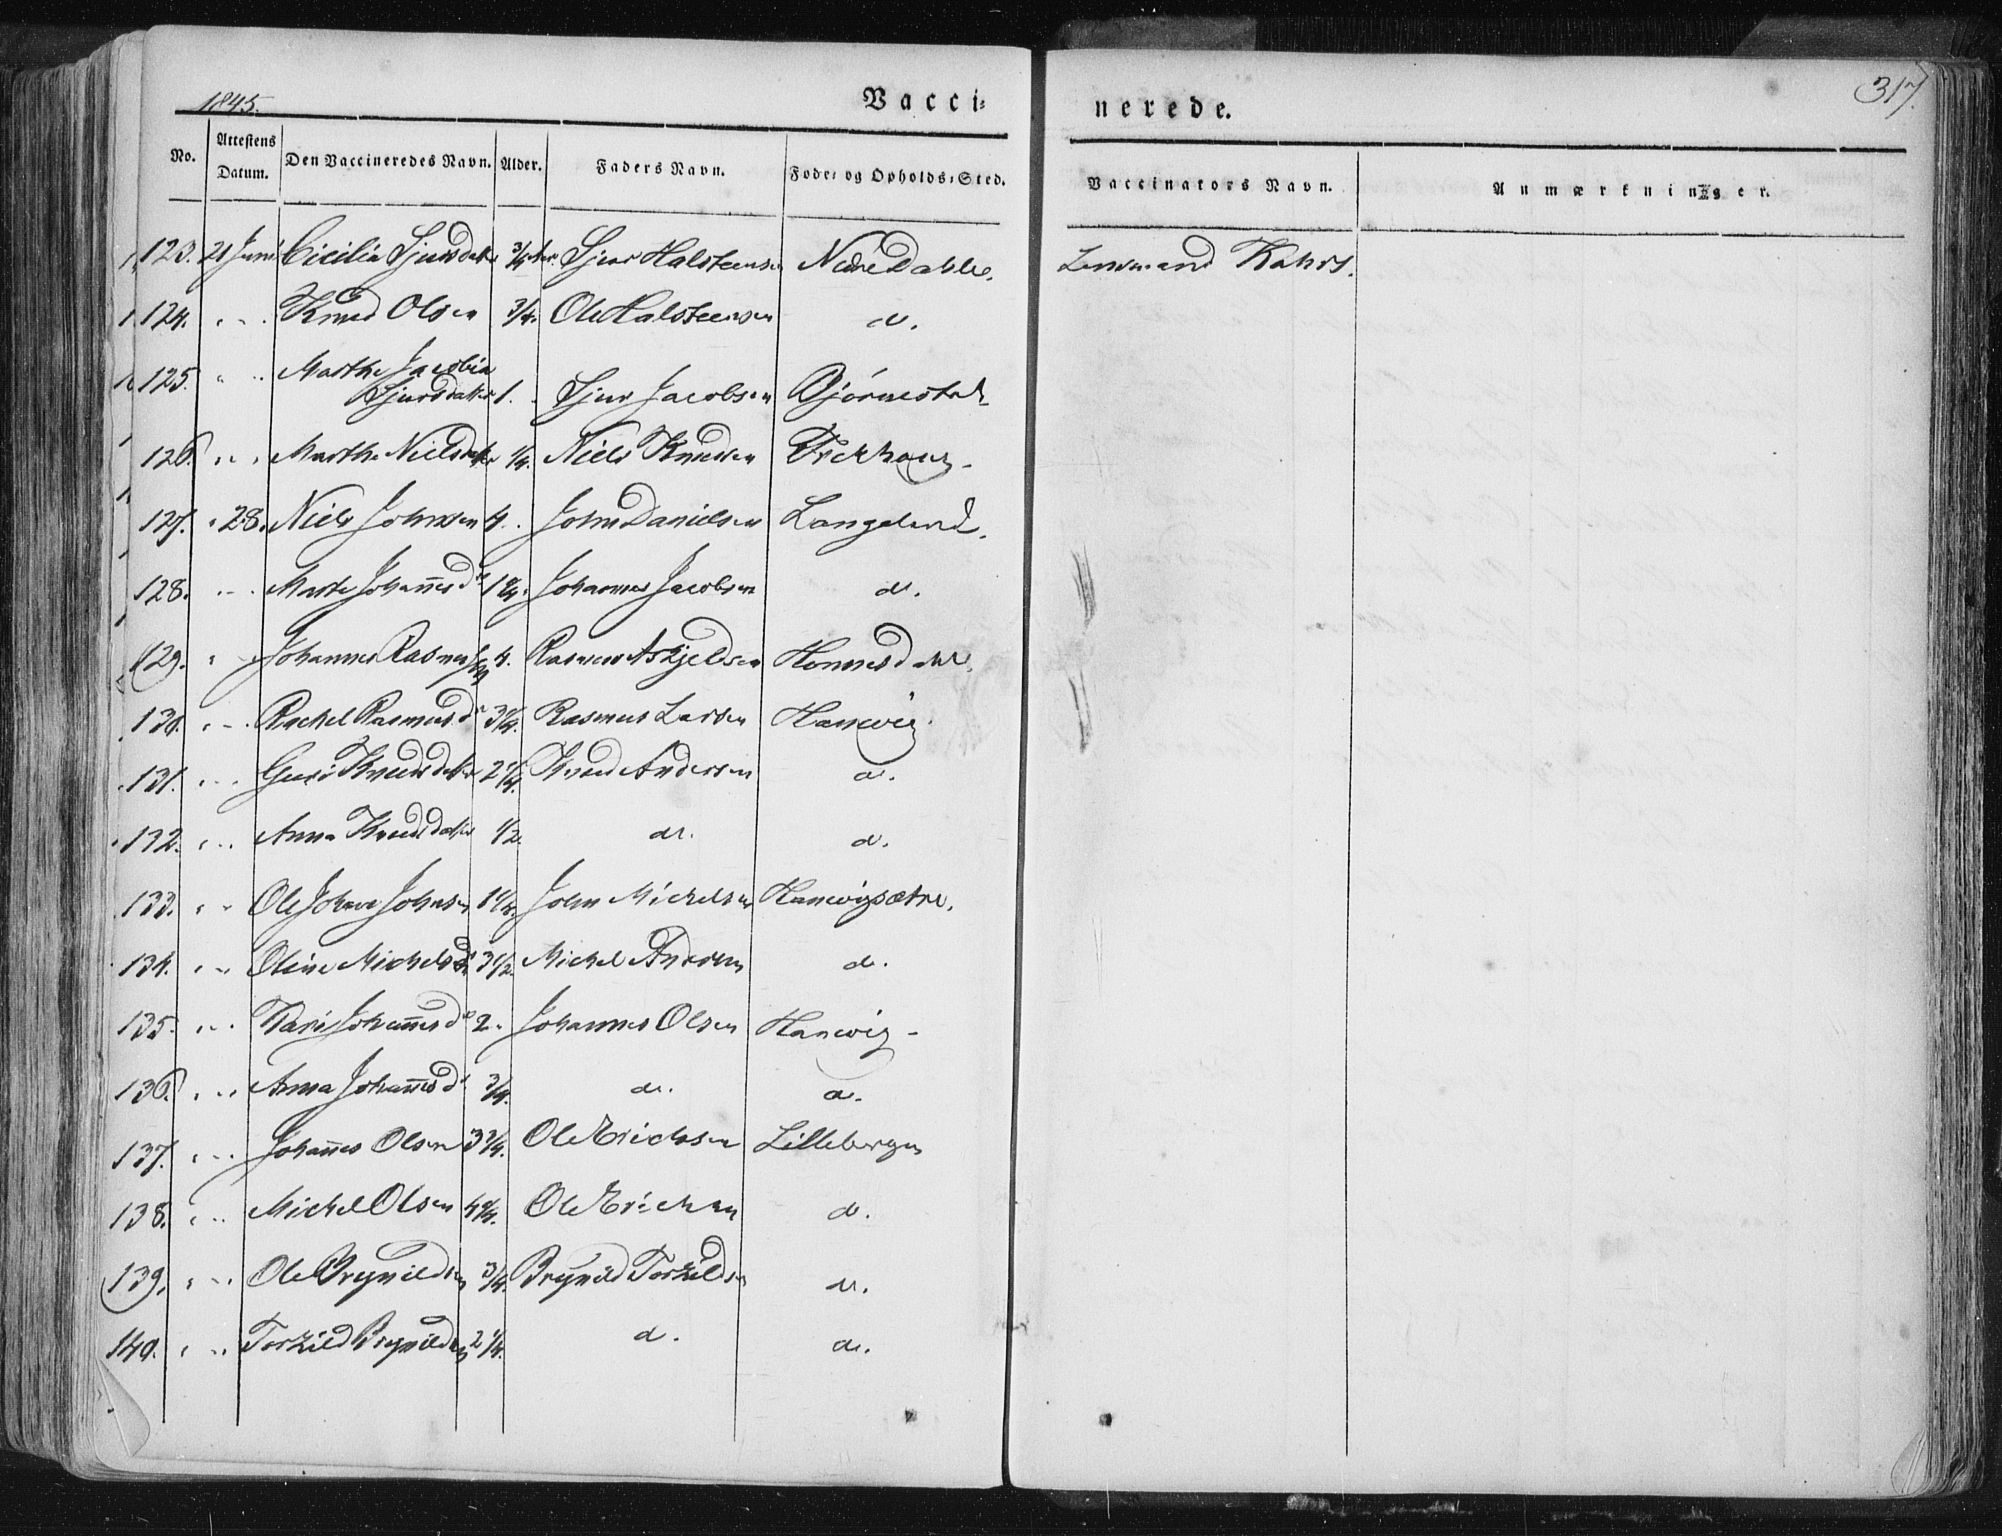 1845.
Vacci-
nerede.
317.
No.
Attestens Datum.
Den Vaccineredes Navn.
Alder.
Faders Navn.
Føde- og Opholds-Sted.
Vaccinators Navn.
Anmærkninger.
123. 21 Juni Cicilia Sjursdatter 3/4 Sjur Halsteensen Nedre Dahle. Lensmand Kahrs.
124. " " Knud Olsen 3/4. Ole Halsteensen do.
125. " " Marthe Jacobia
Sjursdatter 1. Sjur Jacobsen Bjørnestad
126. " " Marthe Nielsdatter 1/4. Niels Knudsen
127. " 28. Niels Johnsen 4. John Danielsen Langeland.
128. " " Marte Johannesdr Johannes Jacobsen do.
129. " " Johannes Rasmussen 4. Rasmus Askjeldsen Hannisdahl.
130. " " Rachel Rasmusdr Rasmus Larsen Hanevig.
131. " " Guri Knudsdatter 2 1/4. Knud Andersen do.
132. " " Anna Knudsdatter 1/2. do. do.
133. " " Ole Johan Johnsen 1 1/4. John Michelsen Hanevigsætre.
134. " " Oline Michelsdr 3 1/2. Michel Andersen do.
135. " " Kari Johannesdr 2. Johannes Olsen Hanevig
136. " " Anna Johannesdr 3/4. do. do.
137. " " Johannes Olsen Ole Erichsen Lillebergen
138. " " Michel Olsen Ole Erichsen do.
139. " " Ole Brynildsen 3/4. Brynild Torkildsen do.
140. " " Torkild Brynildsen 2 1/4. do. do.